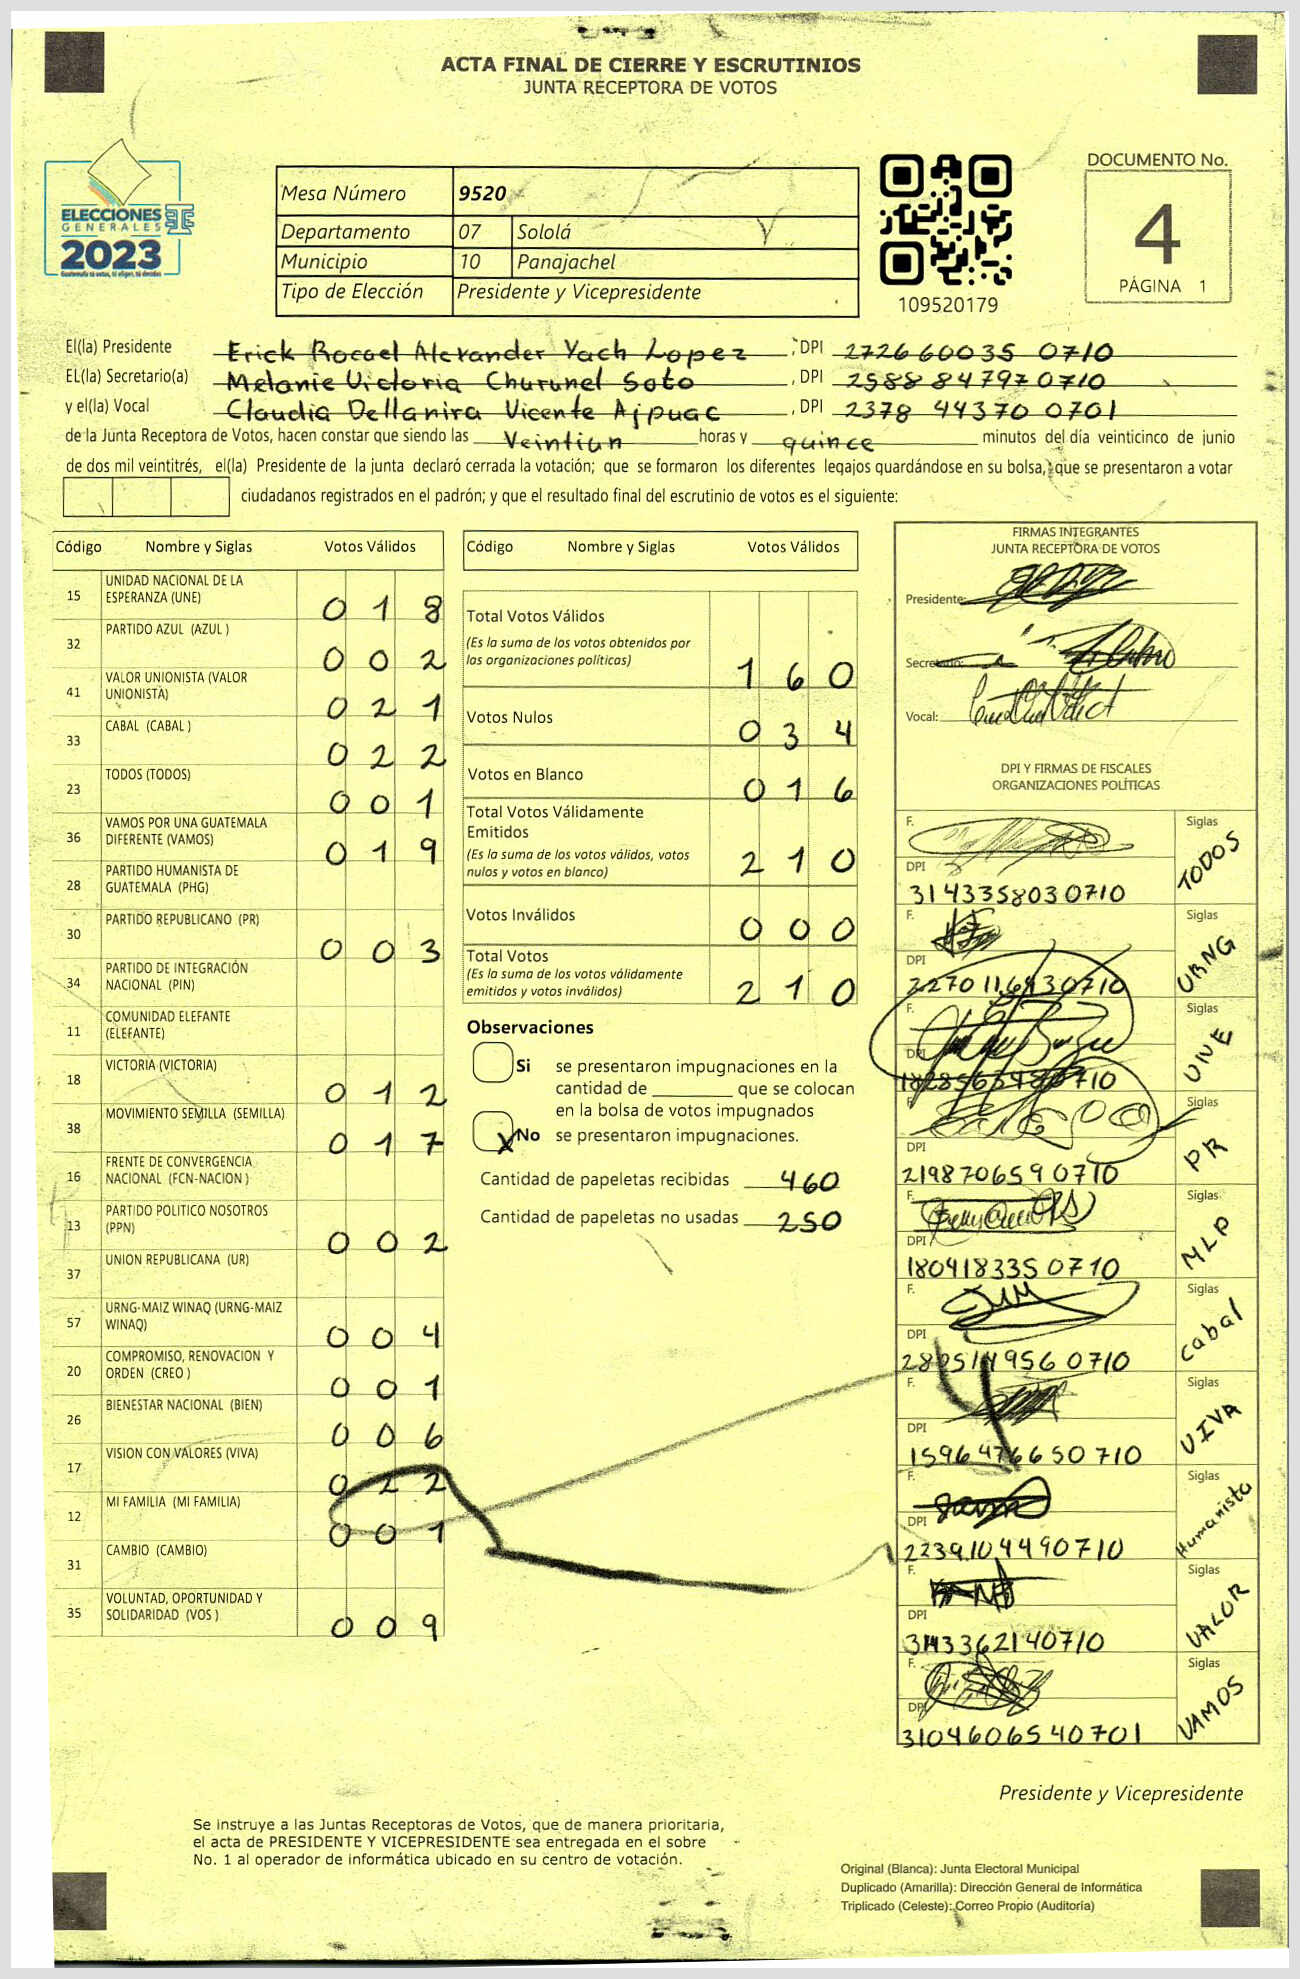 ACTA FINAL DE CIERRE Y ESCRUTINIOS
JUNTA RECEPTORA DE VOTOS
ELECCIONES
GENERALES
2023
Guatemala tú votas, tú eliges, tú decides
Mesa Número 9520
Departamento 07 Sololá
Municipio 10 Panajachel
Tipo de Elección Presidente y Vicepresidente
109520179
DOCUMENTO No.
4
PÁGINA 1
El(la) Presidente Erick Rocael Alexander Yach Lopez, DPI 272660035 0710
EL(la) Secretario(a) Melanie Victoria Churunel Soto, DPI 2588 84797 0710
y el(la) Vocal Claudia Dellanira Vicente Ajpuac, DPI 2378 44370 0701
de la Junta Receptora de Votos, hacen constar que siendo las Veintiun horas y quince minutos del día veinticinco de junio
de dos mil veintitrés, el(la) Presidente de la junta declaró cerrada la votación; que se formaron los diferentes legajos guardándose en su bolsa, que se presentaron a votar
ciudadanos registrados en el padrón; y que el resultado final del escrutinio de votos es el siguiente:
Código Nombre y Siglas Votos Válidos
15 UNIDAD NACIONAL DE LA
ESPERANZA (UNE) 0 1 8
32 PARTIDO AZUL (AZUL ) 0 0 2
41 VALOR UNIONISTA (VALOR
UNIONISTA) 0 2 1
33 CABAL (CABAL ) 0 2 2
23 TODOS (TODOS) 0 0 1
36 VAMOS POR UNA GUATEMALA
DIFERENTE (VAMOS) 0 1 9
28 PARTIDO HUMANISTA DE
GUATEMALA (PHG)
30 PARTIDO REPUBLICANO (PR) 0 0 3
34 PARTIDO DE INTEGRACIÓN
NACIONAL (PIN)
11 COMUNIDAD ELEFANTE
(ELEFANTE)
18 VICTORIA (VICTORIA) 0 1 2
38 MOVIMIENTO SEMILLA (SEMILLA) 0 1 7
16 FRENTE DE CONVERGENCIA
NACIONAL (FCN-NACION )
13 PARTIDO POLITICO NOSOTROS
(PPN) 0 0 2
37 UNION REPUBLICANA (UR)
57 URNG-MAIZ WINAQ (URNG-MAIZ
WINAQ) 0 0 4
20 COMPROMISO, RENOVACION Y
ORDEN (CREO ) 0 0 1
26 BIENESTAR NACIONAL (BIEN) 0 0 6
17 VISION CON VALORES (VIVA) 0 2 2
12 MI FAMILIA (MI FAMILIA) 0 0 1
31 CAMBIO (CAMBIO)
35 VOLUNTAD, OPORTUNIDAD Y
SOLIDARIDAD (VOS ) 0 0 9
Código Nombre y Siglas Votos Válidos
Total Votos Válidos
(Es la suma de los votos obtenidos por
las organizaciones políticas) 1 6 0
Votos Nulos 0 3 4
Votos en Blanco 0 1 6
Total Votos Válidamente
Emitidos
(Es la suma de los votos válidos, votos
nulos y votos en blanco) 2 1 0
Votos Inválidos 0 0 0
Total Votos
(Es la suma de los votos válidamente
emitidos y votos inválidos) 2 1 0
Observaciones
Si se presentaron impugnaciones en la
cantidad de ________ que se colocan
en la bolsa de votos impugnados
X No se presentaron impugnaciones.
Cantidad de papeletas recibidas 460
Cantidad de papeletas no usadas 250
FIRMAS INTEGRANTES
JUNTA RECEPTORA DE VOTOS
Presidente:
Secretario:
Vocal:
DPI Y FIRMAS DE FISCALES
ORGANIZACIONES POLÍTICAS
F. Siglas
DPI TODOS
3143358030710
F. Siglas
DPI URNG
F. Siglas
DPI UNE
F. Siglas
DPI PR
2198706590710
F. Siglas
DPI MLP
180418335 0710
F. Siglas
DPI Cabal
F. Siglas
DPI VIVA
1596476650710
F. Siglas
DPI Humanista
2239104490710
F. Siglas
DPI VALOR
3143362140710
F. Siglas
DPI VAMOS
3104606540701
Presidente y Vicepresidente
Se instruye a las Juntas Receptoras de Votos, que de manera prioritaria,
el acta de PRESIDENTE Y VICEPRESIDENTE sea entregada en el sobre
No. 1 al operador de informática ubicado en su centro de votación.
Original (Blanca): Junta Electoral Municipal
Duplicado (Amarilla): Dirección General de Informática
Triplicado (Celeste): Correo Propio (Auditoría)